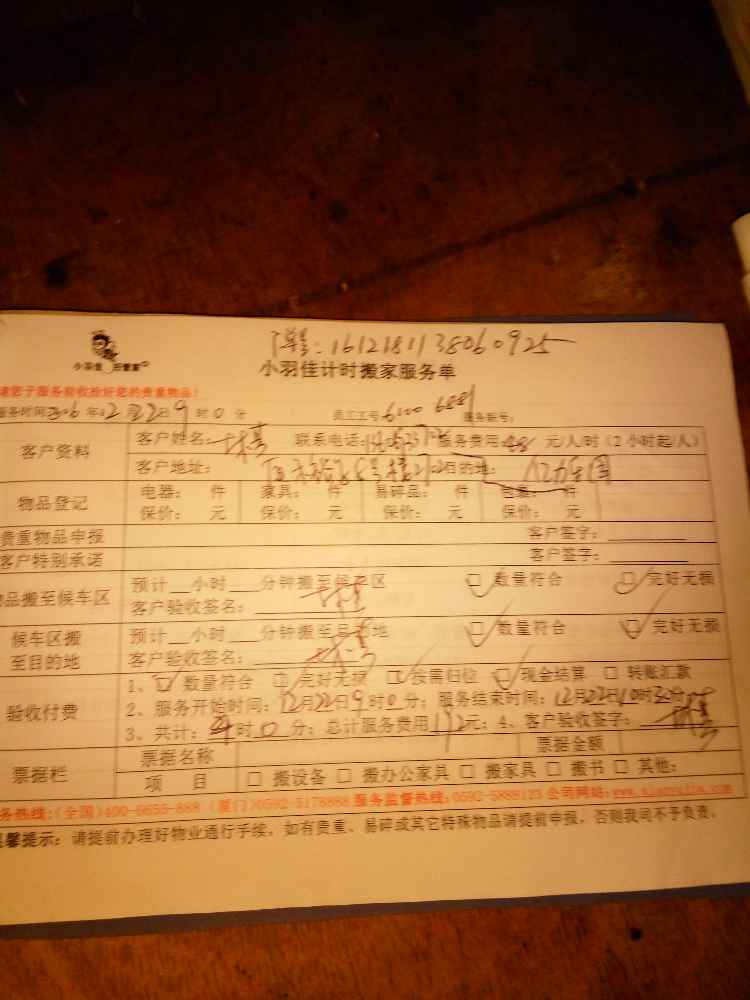 单号:1612181138060925
小羽佳 好管家
小羽佳计时搬家服务单
请您于服务前收拾好您的贵重物品!
服务时间2016年12月22日9时0分 员工工号6100 6881 服务账号:
客户资料
客户姓名: 联系电话: 服务费用:48元/人/时(2小时起/人)
客户地址: 目的地:
物品登记
电器: 件 家具: 件 易碎品: 件 包裹: 件
保价: 元 保价: 元 保价: 元 保价: 元
贵重物品申报 客户签字:
客户特别承诺 客户签字:
物品搬至候车区
预计 小时 分钟搬至候车区 数量符合 完好无损
客户验收签名:
候车区搬至目的地
预计 小时 分钟搬至目的地 数量符合 完好无损
客户验收签名:
验收付费
1、数量符合 完好无损 按需归位 现金结算 转账汇款
2、服务开始时间:12月22日9时0分;服务结束时间:12月22日10时30分
3、共计: 时0分;总计服务费用192元;4、客户验收签字:
票据栏
票据名称 票据金额
项 目 搬设备 搬办公家具 搬家具 搬书 其他:
服务热线:(全国)400-6655-888 (厦门)0592-5178888 服务监督热线:0592-5888123 公司网站:
温馨提示:请提前办理好物业通行手续,如有贵重、易碎或其它特殊物品请提前申报,否则我司不予负责。